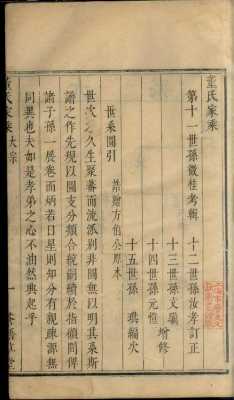 董氏家乘
第十一世孫儆桂考輯　十二世孫汝孝訂正
十三世孫文
十四世孫元愷　增修
十五世孫　琪編次
世系圖引
榮贈方伯公原本
世次之久生聚蕃而流派別非圖無以明其系斯
譜之作先現以圖支分類合統嗣續於指顧間俾
諸子孫一展卷而炳若日星則知分有親疎源無
同異也夫如是孝弟之心不油然興起乎
董氏家乘　世系　一